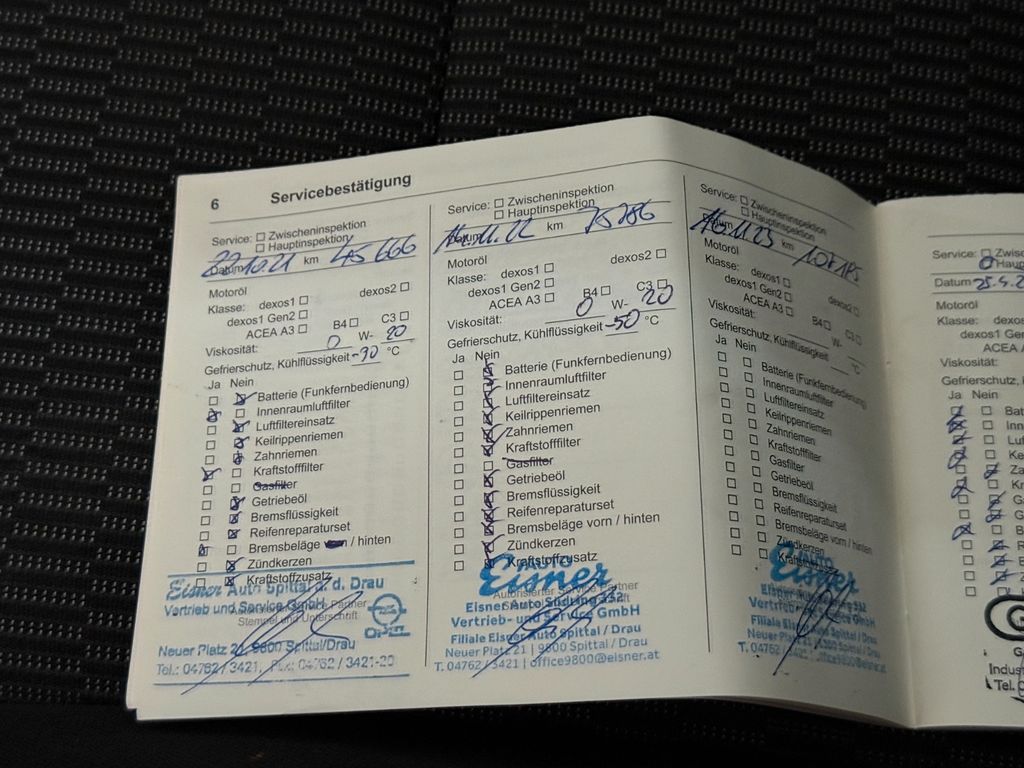 6 Servicebestätigung
Service: Zwischeninspektion
Hauptinspektion
Datum 22.10.21 km 45 666
Motoröl
Klasse: dexos1 dexos2
dexos1 Gen2
ACEA A3 B4 C3
Viskosität: 0 W- 20
Gefrierschutz, Kühlflüssigkeit -30 °C
Ja Nein
Batterie (Funkfernbedienung)
Innenraumluftfilter
Luftfiltereinsatz
Keilrippenriemen
Zahnriemen
Kraftstofffilter
Gasfilter
Getriebeöl
Bremsflüssigkeit
Reifenreparaturset
Bremsbeläge vorn / hinten
Zündkerzen
Kraftstoffzusatz
Eisner Auto Spittal a. d. Drau
Vertrieb und Service GmbH
Stempel und Unterschrift
OPEL
Neuer Platz 21, 9800 Spittal/Drau
Tel.: 04762/3421, Fax: 04762/3421-20
Service: Zwischeninspektion
Hauptinspektion
Datum 14.11.22 km 75 286
Motoröl
Klasse: dexos1 dexos2
dexos1 Gen2
ACEA A3 B4 C3
Viskosität: 0 W- 20
Gefrierschutz, Kühlflüssigkeit -50 °C
Ja Nein
Batterie (Funkfernbedienung)
Innenraumluftfilter
Luftfiltereinsatz
Keilrippenriemen
Zahnriemen
Kraftstofffilter
Gasfilter
Getriebeöl
Bremsflüssigkeit
Reifenreparaturset
Bremsbeläge vorn / hinten
Zündkerzen
Kraftstoffzusatz
AUTO
Eisner
Autorisierter Service Partner
Eisner Auto Südring 332
Vertrieb- und Service GmbH
Filiale Eisner Auto Spittal / Drau
Neuer Platz 21 | 9800 Spittal / Drau
T. 04762 / 3421 | office9800@eisner.at
Service: Zwischeninspektion
Hauptinspektion
Datum 16.11.23 km
Motoröl
Klasse: dexos1
dexos1 Gen2 dexos2
ACEA A3 B4 C3
Viskosität: W-
Gefrierschutz, Kühlflüssigkeit °C
Ja Nein
Batterie (Funkfernbedienung)
Innenraumluftfilter
Luftfiltereinsatz
Keilrippenriemen
Zahnriemen
Kraftstofffilter
Gasfilter
Getriebeöl
Bremsflüssigkeit
Reifenreparaturset
Bremsbeläge vorn / hinten
Zündkerzen
AUTO
Eisner
Filiale Eisner Auto Spittal / Drau
Neuer Platz 21 | 9800 Spittal / Drau
Service:
Datum 25.4.2
Motoröl
Klasse: dexos1
dexos1 Gen
ACEA A
Viskosität:
Gefrierschutz,
Ja Nein